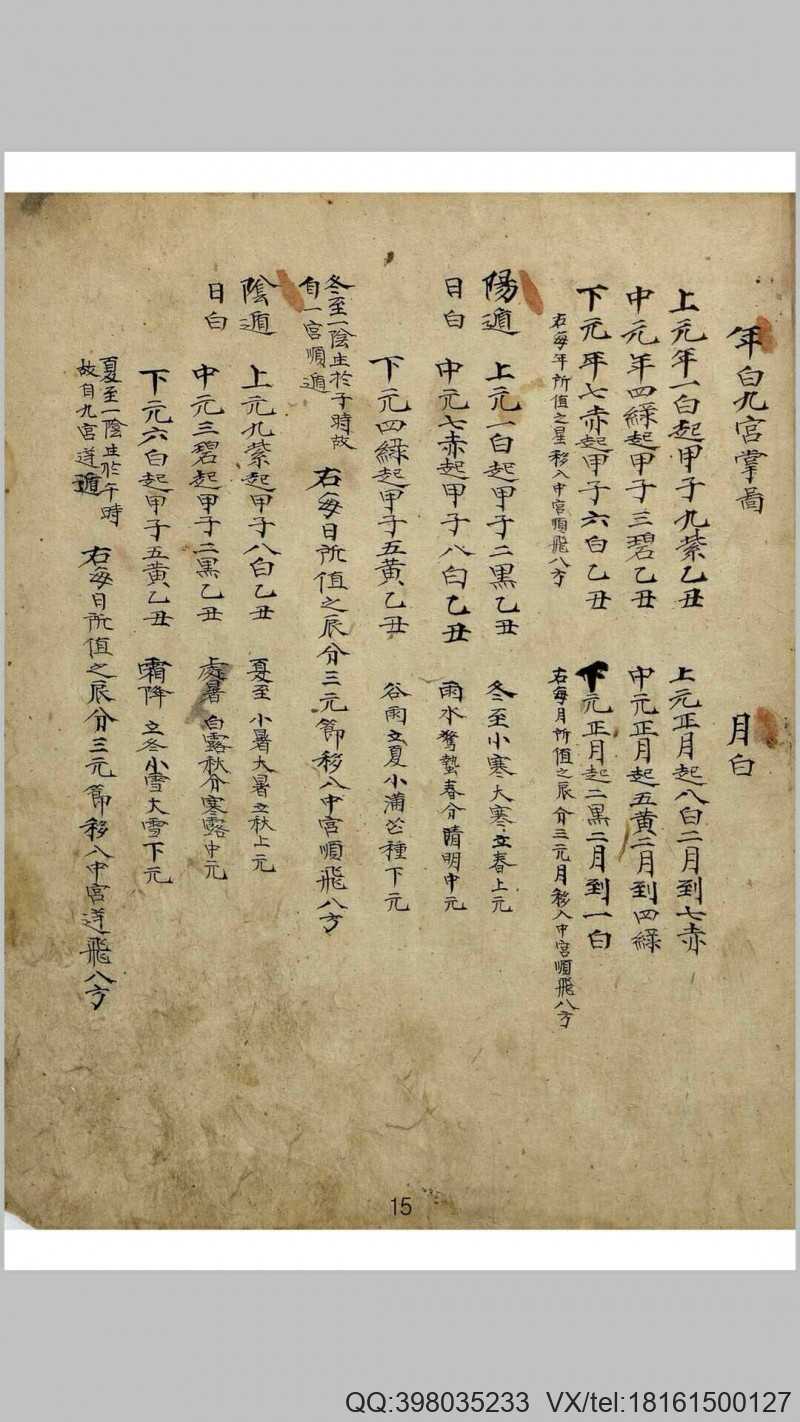 年白九宮掌圖
月白
上元年一白起甲子九紫乙丑
上元正月起八白二月到七赤
中元年四綠起甲子三碧乙丑
中元正月起五黃二月到四綠
下元年七赤起甲子六白乙丑
下元正月起二黑二月到一白
右每年所值之星移入中宮順飛八方
右每月所值之辰分三元月移入中宮順飛八方
陽遁
上元一白起甲子二黑乙丑
冬至小寒大寒立春上元
日白
中元七赤起甲子八白乙丑
雨水驚蟄春分晴明中元
下元四綠起甲子五黃乙丑
谷雨立夏小滿芒種下元
冬至一陰生於子時故
自一宮順遁
右每日所值之辰分三元節移入中宮順飛八方
陰遁
上元九紫起甲子八白乙丑
夏至小暑大暑立秋上元
日白
中元三碧起甲子二黑乙丑
處暑白露秋分寒露中元
下元六白起甲子五黃乙丑
霜降立冬小雪大雪下元
夏至一陰生於午時
故自九宮逆遁
右每日所值之辰分三元節移入中宮逆飛八方
15
QQ:398035233 VX/tel:18161500127